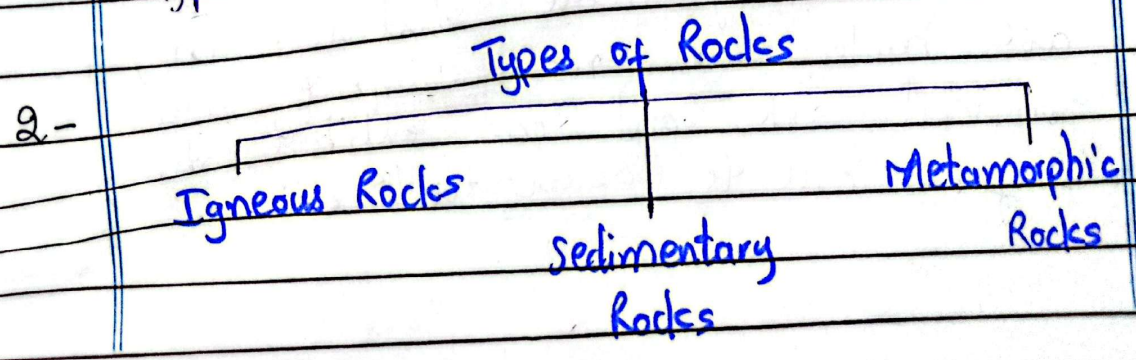 Types of Rocks
2-
Igneous Rocks
Sedimentary
Rocks
Metamorphic
Rocks